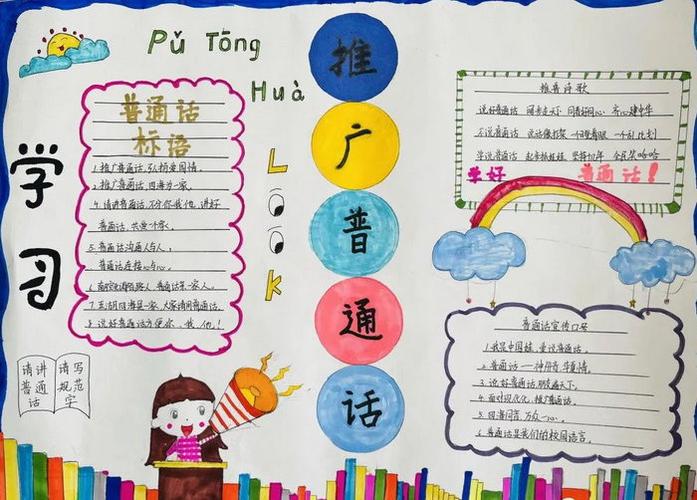 Pǔ Tōng
Huà
推
广
普
通
话
学
习
LOOK
普通话
标语
1.推广普通话,弘扬爱国情。
2.推广普通话,四海为一家。
4.请讲普通话,不分你我他,讲好
普通话,共爱一个家。
5.普通话沟通人与人,
普通话连接心与心。
7.五湖四海是一家,大家请用普通话。
8.说好普通话方便你、我、他!
请讲
普通
话
请写
规范
字
推普诗歌
学好
普通话!
普通话宣传口号
1.我是中国娃,爱说普通话。
2.普通话——神州音,华夏情。
3.说好普通话,朋友遍天下。
4.面对现代化,推广普通话。
5.同讲同音,万众一心。
6.普通话是我们的校园语言。